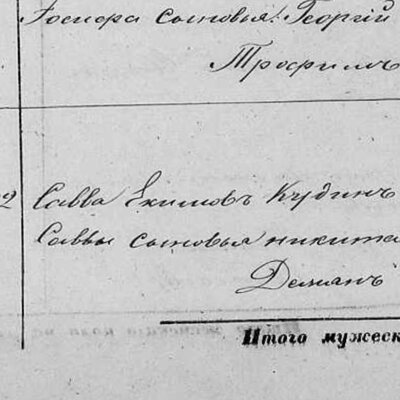 Госифа сыновья: Георгій
Трофимъ
2 Савва Екимовъ Кудинъ
Саввы сыновья никита
Демянъ
Итого мужеск